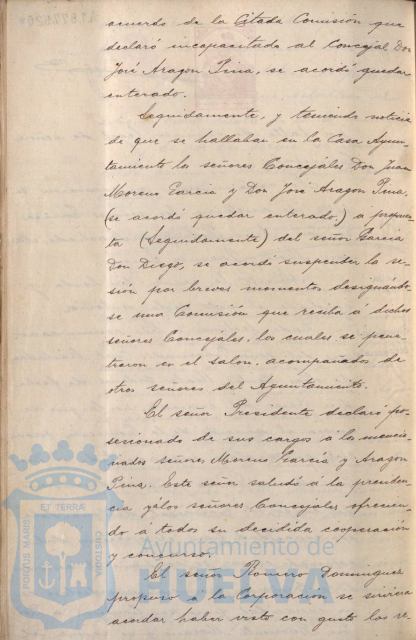 acuerdo de la Citada Comisión que
declaró incapacitado al Concejal Don
José Aragon Pina, se acordó quedar
enterado.
Seguidamente, y teniendo noticia
de que se hallaban en la Casa Ayun-
tamiento los señores Concejales Don Juan
Moreno Garcia y Don José Aragon Pina,
(se acordó quedar enterado,) a propues-
ta (Seguidamente) del señor Garcia
Don Diego, se acordó suspender la se-
sión por breves momentos designándo-
se una Comisión que reciba á dichos
señores Concejales, los cuales se pene-
traron en el salon, acompañados de
otros señores del Ayuntamiento.
El señor Presidente declaró po-
sesionado de sus cargos á los mencio-
nados señores Moreno García y Aragon
Pina. Este señor saludó á la presiden-
cia y á los señores Concejales ofrecien-
do á todos su decidida cooperación
y concurso,
El señor Romero Dominguez
propuso á la Corporación se sirviera
acordar haber visto con gusto los re
PORTUS MARIS
ET TERRÆ
CUSTODIA
Ayuntamiento de
HUELVA